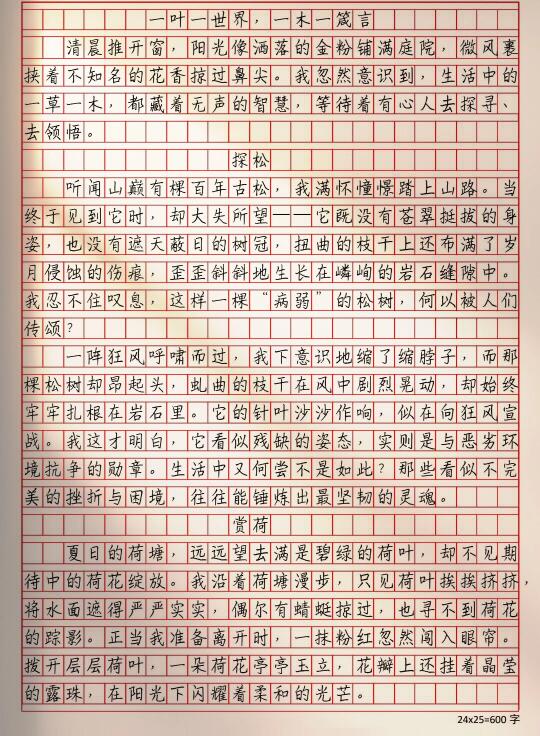 一叶一世界，一木一箴言
清晨推开窗，阳光像洒落的金粉铺满庭院，微风裹
挟着不知名的花香掠过鼻尖。我忽然意识到，生活中的
一草一木，都藏着无声的智慧，等待着有心人去探寻、
去领悟。
探松
听闻山巅有棵百年古松，我满怀憧憬踏上山路。当
终于见到它时，却大失所望——它既没有苍翠挺拔的身
姿，也没有遮天蔽日的树冠，扭曲的枝干上还布满了岁
月侵蚀的伤痕，歪歪斜斜地生长在嶙峋的岩石缝隙中。
我忍不住叹息，这样一棵“病弱”的松树，何以被人们
传颂？
一阵狂风呼啸而过，我下意识地缩了缩脖子，而那
棵松树却昂起头，虬曲的枝干在风中剧烈晃动，却始终
牢牢扎根在岩石里。它的针叶沙沙作响，似在向狂风宣
战。我这才明白，它看似残缺的姿态，实则是与恶劣环
境抗争的勋章。生活中又何尝不是如此？那些看似不完
美的挫折与困境，往往能锤炼出最坚韧的灵魂。
赏荷
夏日的荷塘，远远望去满是碧绿的荷叶，却不见期
待中的荷花绽放。我沿着荷塘漫步，只见荷叶挨挨挤挤，
将水面遮得严严实实，偶尔有蜻蜓掠过，也寻不到荷花
的踪影。正当我准备离开时，一抹粉红忽然闯入眼帘。
拨开层层荷叶，一朵荷花亭亭玉立，花瓣上还挂着晶莹
的露珠，在阳光下闪耀着柔和的光芒。
24x25=600 字